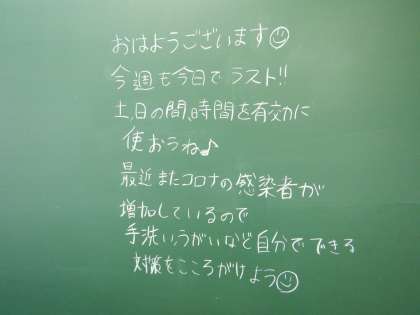 おはようございます☺
今週も今日でラスト!!
土,日の間,時間を有効に
使おうね♪
最近またコロナの感染者が
増加しているので
手洗い,うがいなど自分でできる
対策をこころがけよう☺